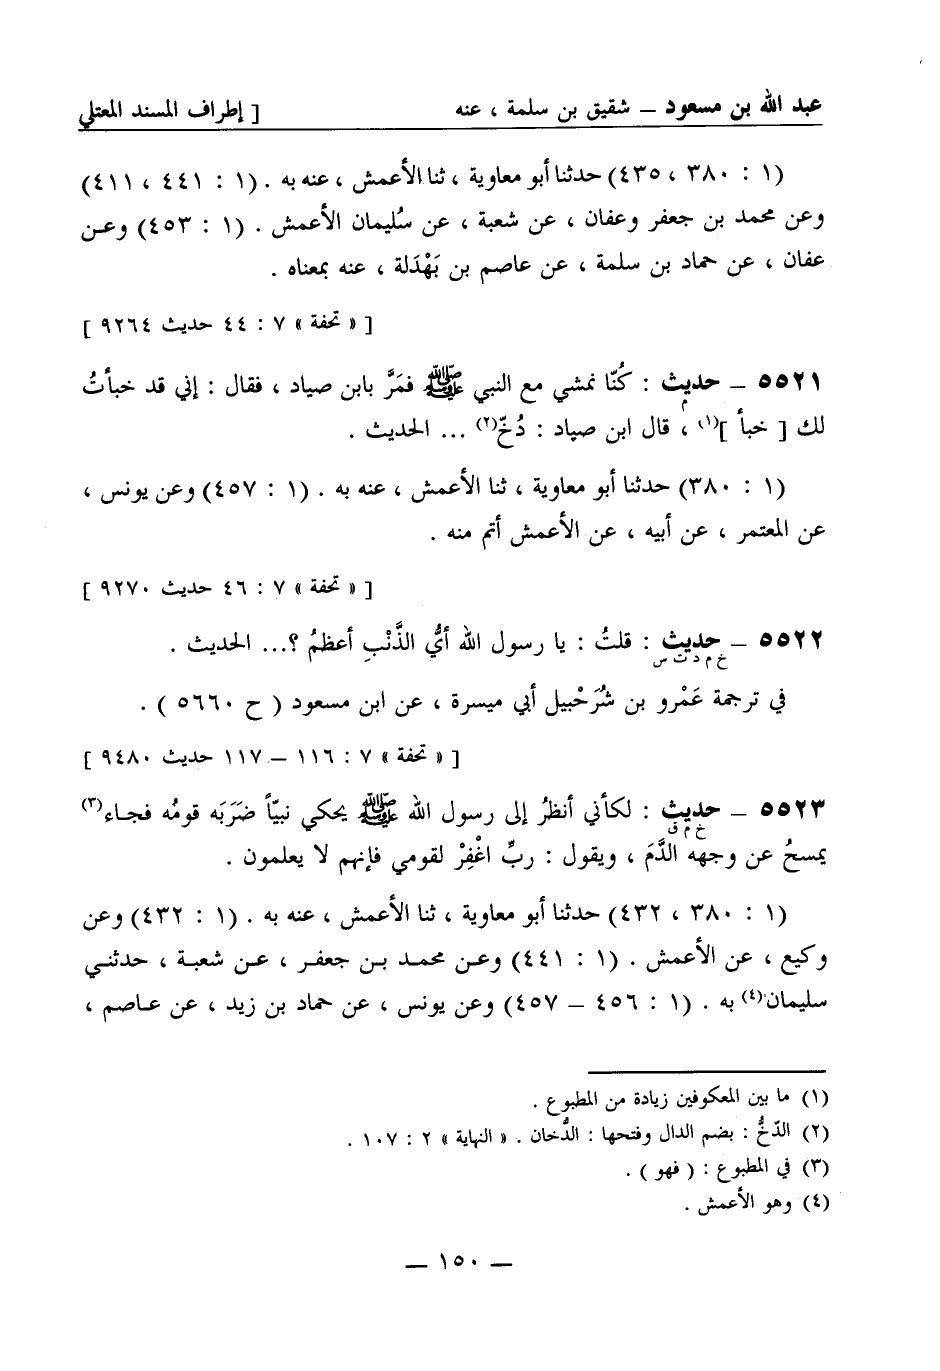 عبد الله بن مسعود – شقيق بن سلمة ، عنه [ إطراف المسند المعتلي
(١ : ٣٨٠ ، ٤٣٥) حدثنا أبو معاوية ، ثنا الأعمش ، عنه به . (١ : ٤٤١ ، ٤١١)
وعن محمد بن جعفر وعفان ، عن شعبة ، عن سُليمان الأعمش . (١ : ٤٥٣) وعن
عفان ، عن حماد بن سلمة ، عن عاصم بن بَهْدَلة ، عنه بمعناه .
[ « تحفة » ٧ : ٤٤ حديث ٩٢٦٤ ]
٥٥٢١ – حديث : كُنّا نمشي مع النبي ﷺ فمَرَّ بابن صياد ، فقال : إني قد خبأتُ
م
لك [ خبأ ](١) ، قال ابن صياد : دُخّ(٢) ... الحديث .
(١ : ٣٨٠) حدثنا أبو معاوية ، ثنا الأعمش ، عنه به . (١ : ٤٥٧) وعن يونس ،
عن المعتمر ، عن أبيه ، عن الأعمش أتم منه .
[ « تحفة » ٧ : ٤٦ حديث ٩٢٧٠ ]
٥٥٢٢ – حديث : قلتُ : يا رسول الله أيُّ الذَّنْبِ أعظمُ ؟... الحديث .
خ م د ت س
في ترجمة عَمْرو بن شُرَحْبيل أبي ميسرة ، عن ابن مسعود ( ح ٥٦٦٠ ) .
[ « تحفة » ٧ : ١١٦ – ١١٧ حديث ٩٤٨٠ ]
٥٥٢٣ – حديث : لكأني أنظرُ إلى رسول الله ﷺ يحكي نبيّاً ضَرَبَه قومُه فجاء(٣)
خ م ق
يمسحُ عن وجهه الدَّمَ ، ويقول : ربِّ اغْفِرْ لقومي فإنهم لا يعلمون .
(١ : ٣٨٠ ، ٤٣٢) حدثنا أبو معاوية ، ثنا الأعمش ، عنه به . (١ : ٤٣٢) وعن
وكيع ، عن الأعمش . (١ : ٤٤١) وعن محمد بن جعفر ، عن شعبة ، حدثني
سليمان(٤) به . (١ : ٤٥٦ – ٤٥٧) وعن يونس ، عن حماد بن زيد ، عن عاصم ،
(١) ما بين المعكوفين زيادة من المطبوع .
(٢) الدّخُّ : بضم الدال وفتحها : الدُّخان . « النهاية » ٢ : ١٠٧ .
(٣) في المطبوع : ( فهو ) .
(٤) وهو الأعمش .
– ١٥٠ –